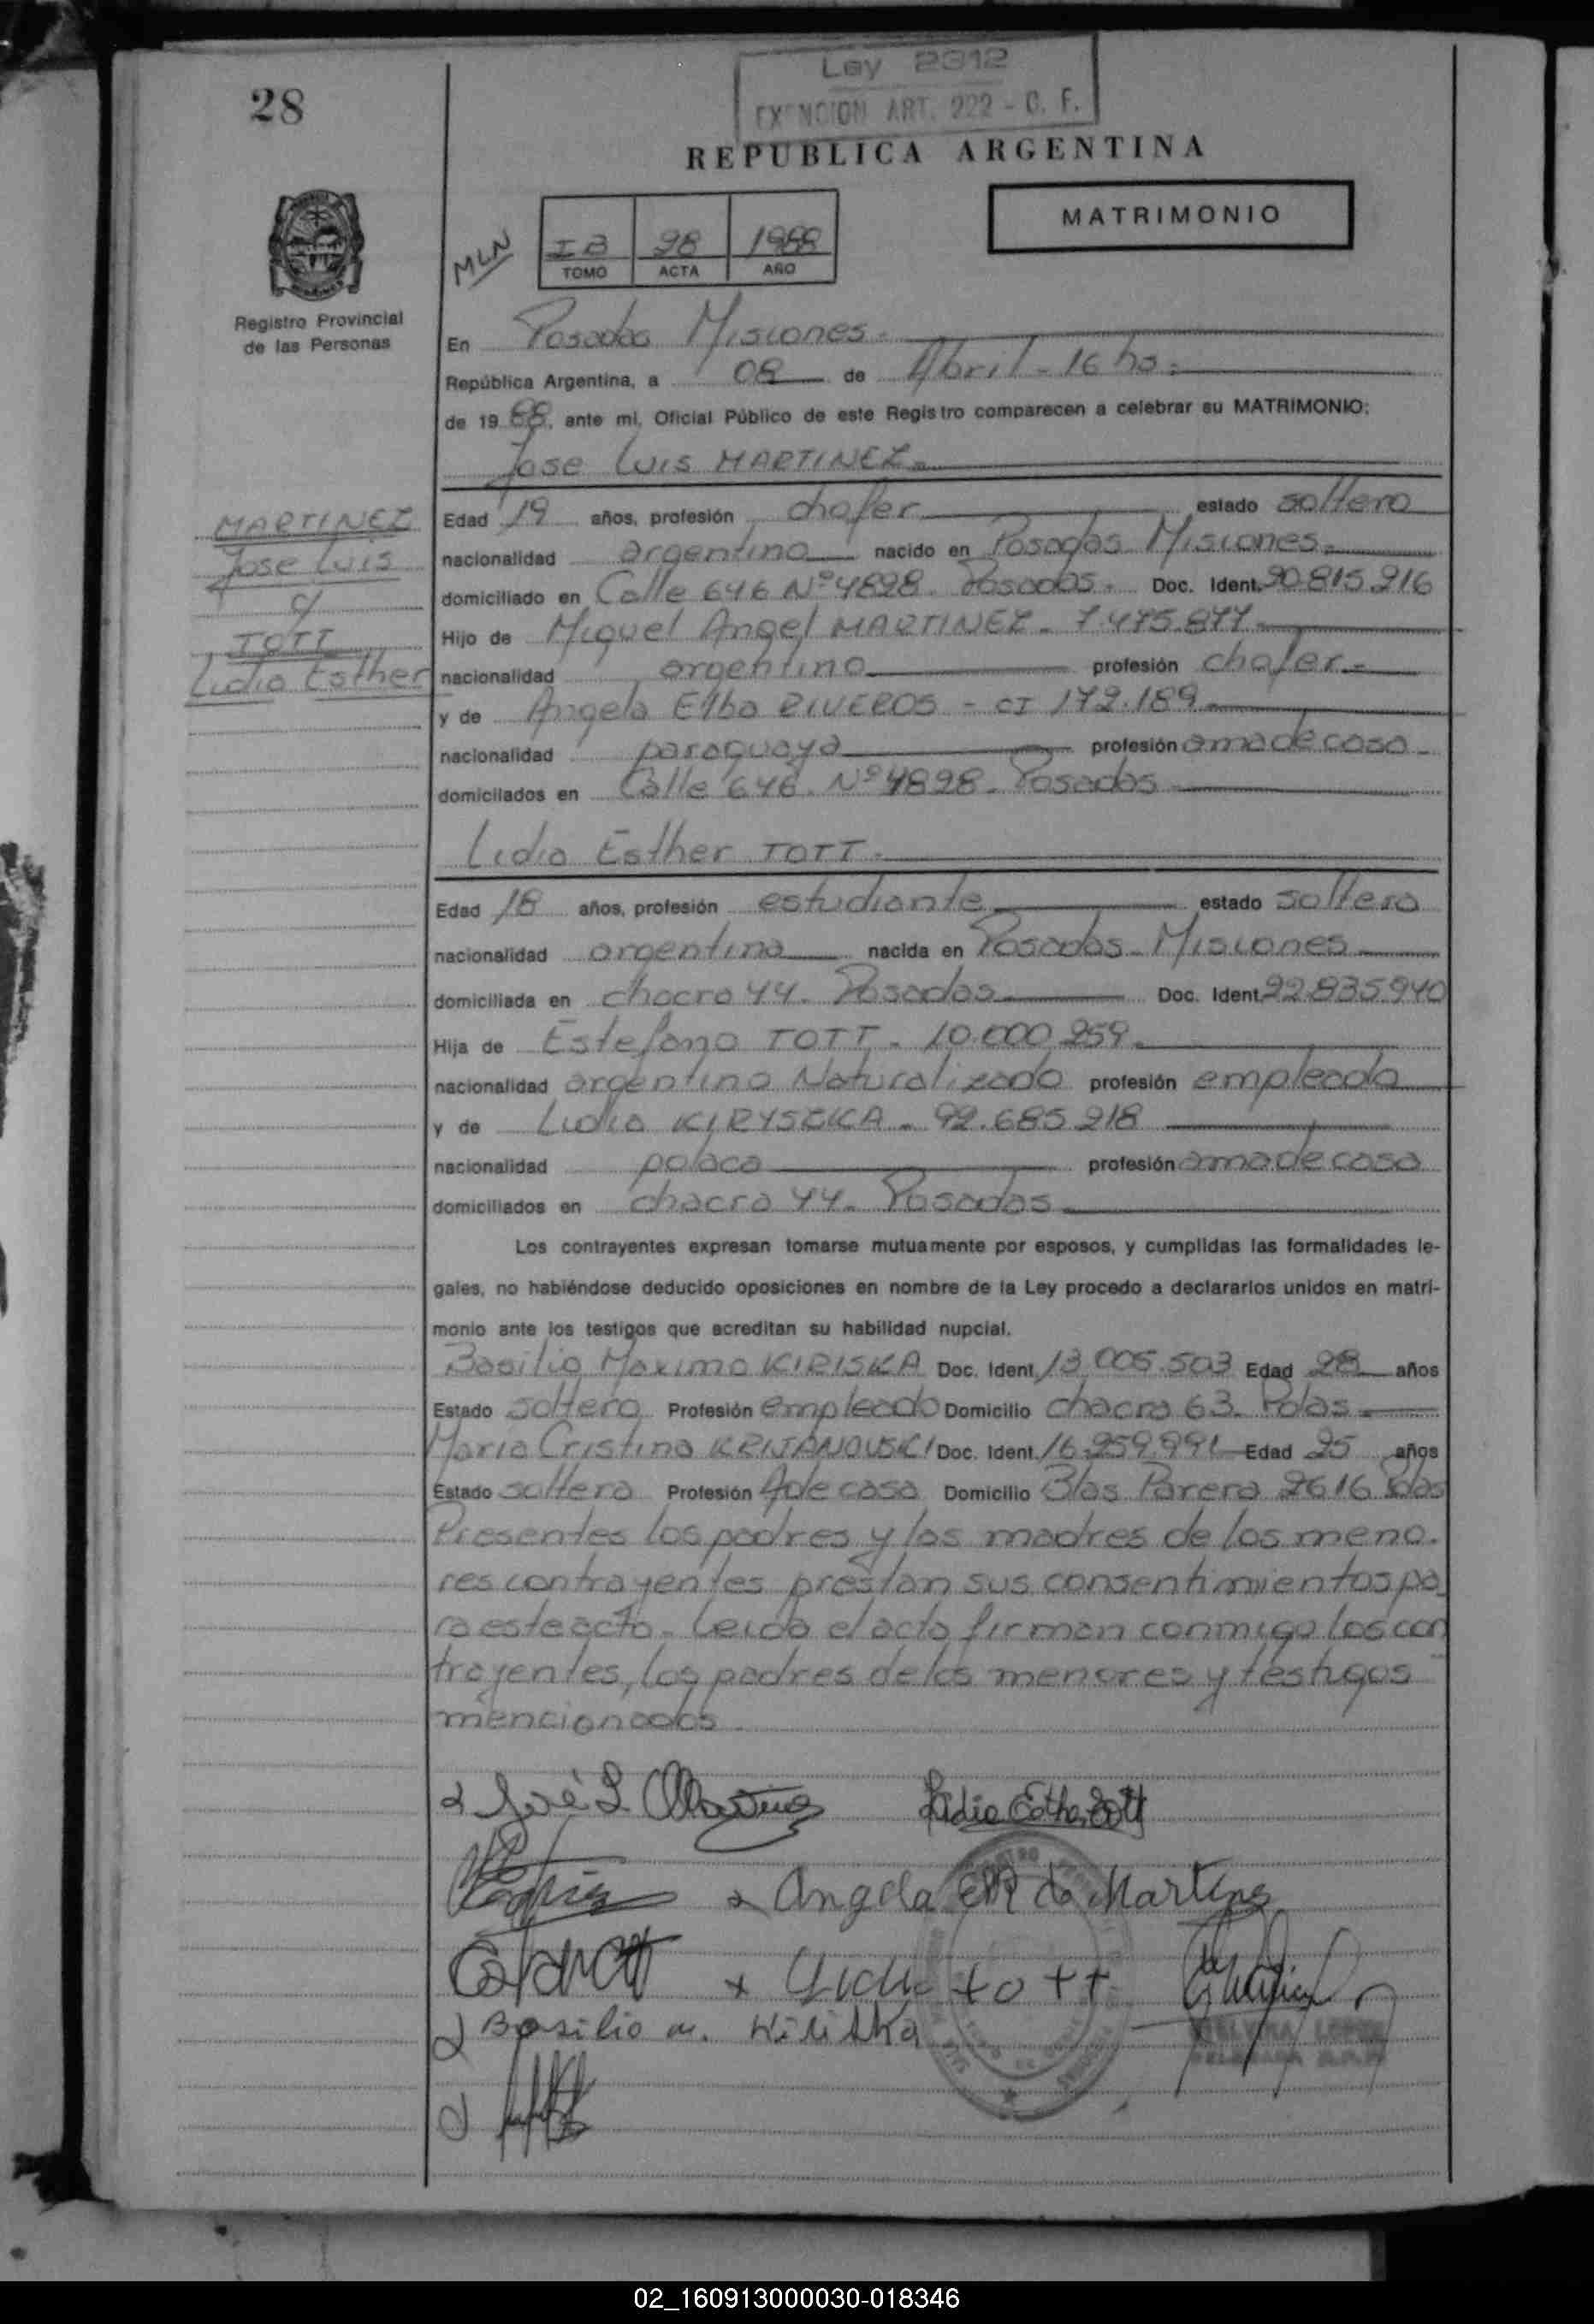 28
Ley 2312
EXENCION ART. 222 - C. F.
REPUBLICA ARGENTINA
MATRIMONIO
MLN
I B 28 1988
TOMO ACTA AÑO
Registro Provincial
de las Personas
En Posadas Misiones.
República Argentina, a 08 de Abril - 16 hs.
de 1988, ante mi, Oficial Público de este Registro comparecen a celebrar su MATRIMONIO:
Jose Luis MARTINEZ
MARTINEZ
Jose Luis
c/
TOTT
Lidia Esther
Edad 19 años, profesión chofer estado soltero
nacionalidad argentino nacido en Posadas Misiones.
domiciliado en Calle 646 Nº 4828. Posadas. Doc. Ident. 20.815.216
Hijo de Miguel Angel MARTINEZ - 7.475.877.
nacionalidad argentino profesión chofer.
y de Angela Elba RIVEROS - CI 172.189
nacionalidad paraguaya profesión ama de casa
domicilados en Calle 646. Nº 4828. Posadas
Lidia Esther TOTT.
Edad 18 años, profesión estudiante estado soltera
nacionalidad argentina nacida en Posadas - Misiones
domiciliada en chacra 44. Posadas Doc. Ident. 22.835.940
Hija de Estefano TOTT. 10.000.259.
nacionalidad argentino Naturalizado profesión empleado
y de Lidia KIRYSZKA - 92.685.218
nacionalidad polaca profesión ama de casa
domiciliados en chacra 44. Posadas
Los contrayentes expresan tomarse mutuamente por esposos, y cumplidas las formalidades le-
gales, no habiéndose deducido oposiciones en nombre de la Ley procedo a declararlos unidos en matri-
monio ante los testigos que acreditan su habilidad nupcial.
Basilio Maximo KIRISKA Doc. Ident. 13.005.503 Edad 28 años
Estado soltero Profesión empleado Domicilio chacra 63. Pdas
Maria Cristina KRUJANOVSKI Doc. Ident. 16.259.991 Edad 25 años
Estado soltera Profesión A de casa Domicilio Blas Parera 2616 Pdas
Presentes los padres y las madres de los meno.
res contrayentes prestan sus consentimientos pa
ra este acto. Leida el acta firman conmigo los con
trayentes, los padres de los menores y testigos
mencionados.
José L. Martinez Lidia Esther Tott
Angela ER de Martinez
Lidia tott
Basilio M. Kiriska
02_160913000030-018346